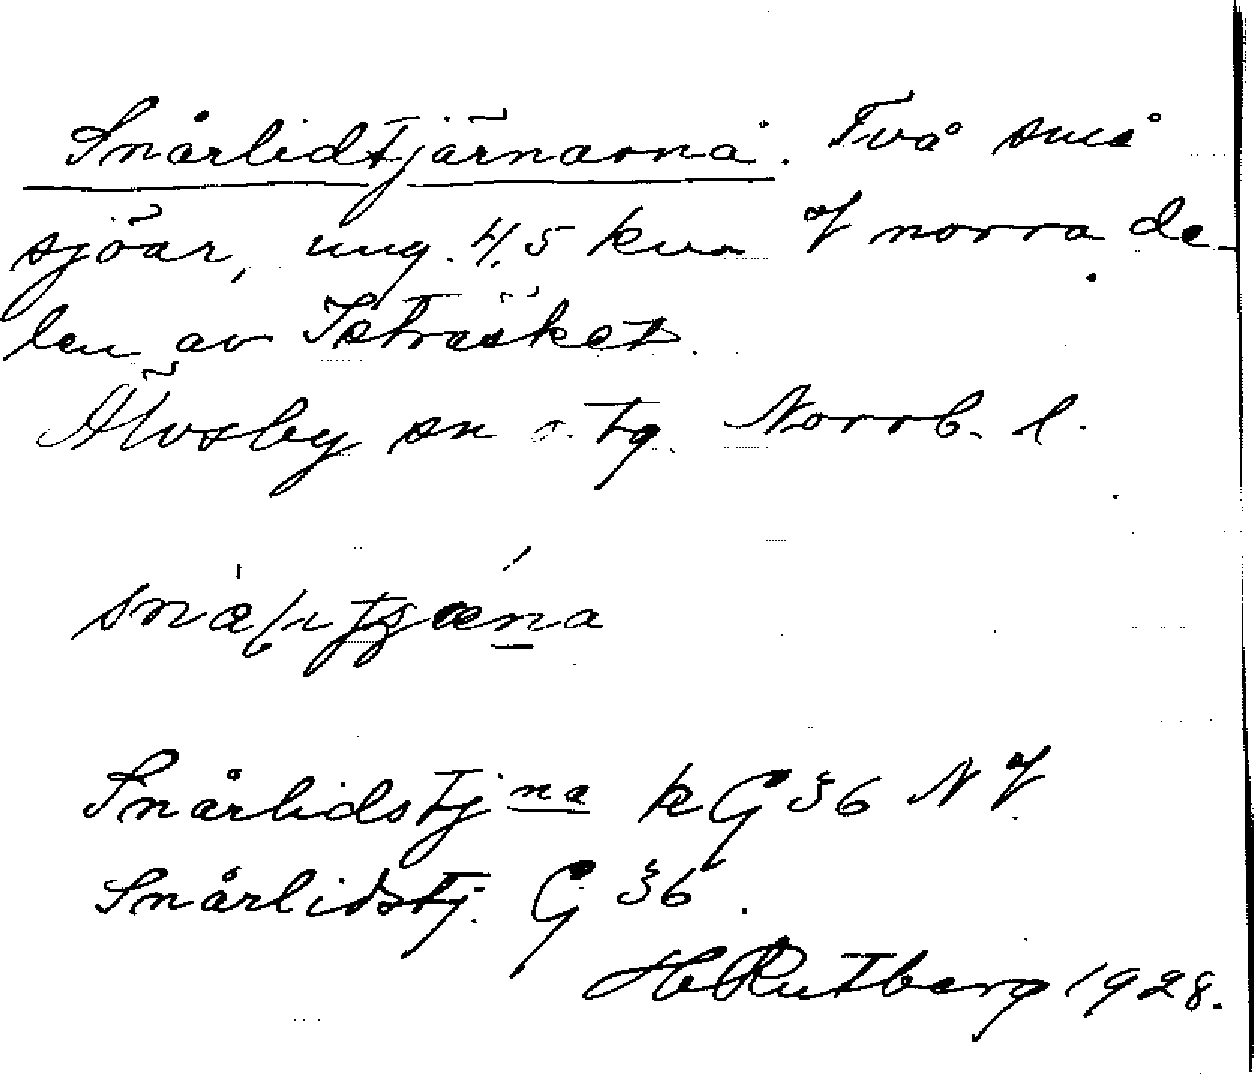 Snårlidtjärnarna. Två små
sjöar, ung. 4,5 km V norra de-
len av Teträsket.
Älvsby sn o. tg. Norrb. l.
Snårlidstjna k G 36 N V
Snårlidstj. G 36.
H Rutberg 1928.